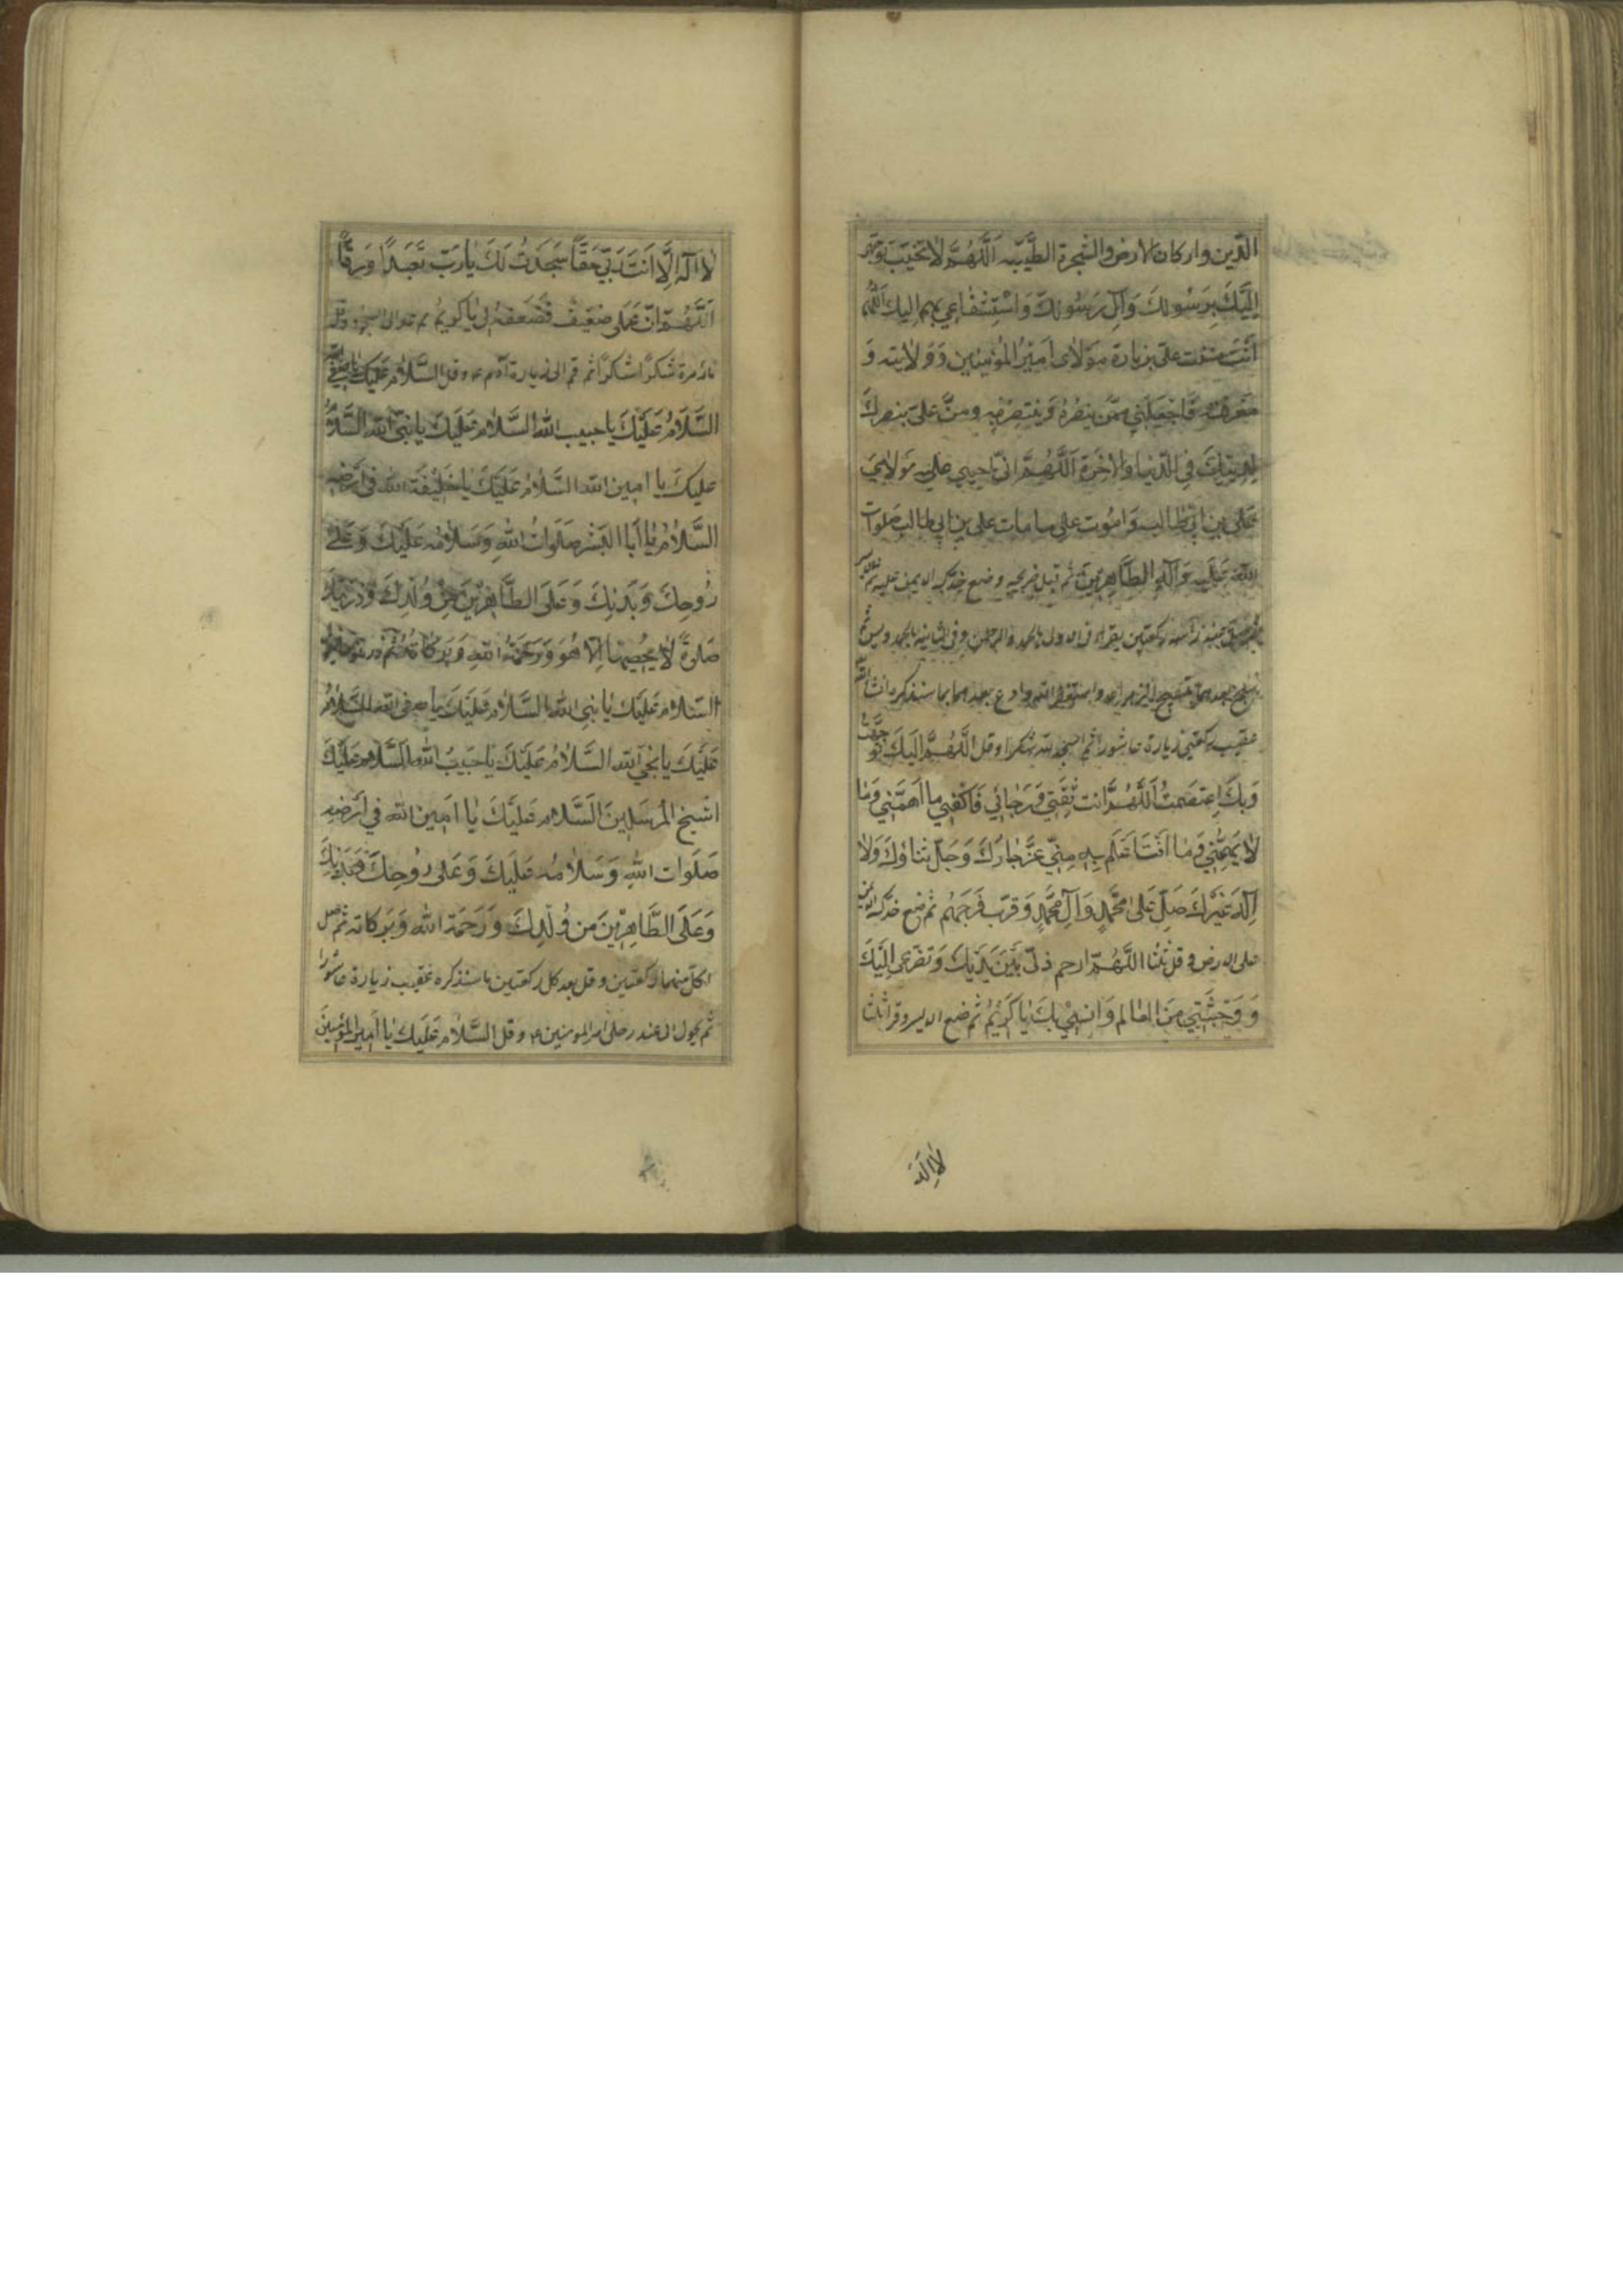 الدّين واركان الارض والشجرة الطَّيّبه اَللَّهُمَّ لاٰ تخيّب توجّهى
اِلَيْكَ بِرَسُولِكَ وَآلِ رَسُولِكَ وَاسْتِشْفٰاعِي بهم اليك اللّهُمَّ
اَنْتَ مننت على بزيارة مَوْلاٰى اَمِيرُ المُؤْمِنِين وَوَلاٰيته وَ
مَعْرِفته فَاجْعَلْنِي مِمَّن يَنصُرُهُ وَيَنْتَصِرُ بِهِ ومنَّ عَلىَّ بنصرِكَ
لِدِينِكَ فِي الدّنيا والاٰخِرَة اَللَّهُمَّ انّى احيى على مَوْلاٰيَ
عَلى بن ابيطالب وَامُوت على ما مات على بن ابى طالب صلوات
اللّٰه عَلَيه وَآلِهِ الطَّاهِرِينَ ثم قبل ضريحه وضع خدّك الايمن عليه ثم الايسر
ثم صلّ عند رأسه ركعتين يقراء فى الاولى بالحمد والرحمن وفى الثانيه بالحمد ويس ثم
تسبّح بعدهما تسبيح الزهراء وا ستغفر اللّه وادع بعدهما بما سنذكره انشاء اللّه
عقيب ركعتى زيارة عاشورا ثم اسجد للّه شكرا وقل اَللَّهُمَّ اِلَيْكَ تَوَجَّهْتُ
وَبِكَ اِعتصمتُ اَللَّهُمَّ انت ثِقَتِي وَرَجٰائِي فَاكْفِنِي ما اَهَمَّنِي وَمٰا
لاٰ يُهِمُّنِي وَمٰا اَنْتَ اَعْلَم بِهِ مِنِّي عَزَّ جٰارُكَ وَجَلَّ ثناؤُكَ وَلاٰ
اِلٰهَ غَيْرُكَ صَلِّ عَلىٰ مُحَمَّدٍ وَآلِ مُحَمَّدٍ وَقَرّب فَرَجَهُم ثم ضع خدّك الايمن
على الارض وقل ثلثا اللَّهُمَّ ارحم ذلّى بَيْنَ يَدَيْكَ وَتضرّعى اِلَيْكَ
وَوَحْشَتِي مِنَ العٰالم وَاُنسِي بِكَ يٰا كَرِيمُ ثم ضع الايسر وقل ثلثا
لاٰ اِلٰهَ
لاٰ اِلٰهَ اِلَّا اَنْتَ رَبّي حَقّاً سَجَدْتُ لَكَ يٰا رَبّ تَعَبُّداً وَرِقّاً
اَللَّهُمَّ اِنّ عَمَلى ضعيف فَضَعفه لى يٰا كَرِيمُ ثم عد الى السجود وقل
مائة مرة شكرًا شكرًا ثم قم الى زيارة آدم ع وقل السَّلاٰم عَلَيْكَ يٰا صفى اللّه
السَّلاٰمُ عَلَيْكَ يا حبيب اللّٰه السَّلاٰم عَلَيْكَ يا نبىّ اللّٰه السَّلاٰمُ
عليكَ يا امين اللّٰه السَّلاٰمُ عَلَيْكَ يٰا خَلِيفَة اللّٰه فى اَرْضِهِ
السَّلاٰمُ يٰا اَبَا البَشَر صَلَوٰاتُ اللّٰهِ وَسَلاٰمُه عَلَيْكَ وَعَلىٰ
رُوحِكَ وَبَدَنِكَ وَعَلَى الطَّاهِرِينَ مِنْ وُلْدِكَ وَذُرّيّتِكَ
صَلوةً لاٰ يُحْصِيهٰا اِلاّ هُوَ وَرَحْمَةُ اللّٰهِ وَبَرَكٰاتُهُ ثم
السَّلاٰم عَلَيْكَ يٰا نبى اللّٰه السَّلاٰم عَلَيْكَ يٰا صفى اللّٰه السَّلاٰمُ
عَلَيْكَ يا نجىّ اللّٰه السَّلاٰمُ عَلَيْكَ يٰا حَبيبُ اللّٰه السَّلاٰم عَلَيْكَ
اشيخ المُرْسَلِينَ السَّلاٰم عَلَيْكَ يٰا اَمِين اللّٰه فِي اَرْضِهِ
صَلَوٰات اللّٰهِ وَسَلاٰمُه عَلَيْكَ وَعَلى رُوحِكَ وَبَدَنِكَ
وَعَلَى الطَّاهِرِينَ من وُلْدِكَ وَرَحْمَة اللّٰه وَبَرَكاته ثم صل
لكلّ منهما ركعتين وقل بعد كل ركعتين ما سنذكره عقيب زيارة عاشورا
ثم تحول الى عند رجلى امير المومنين ع وقل السَّلاٰم عَلَيْكَ يٰا اَمِير المُؤْمِنِينَ